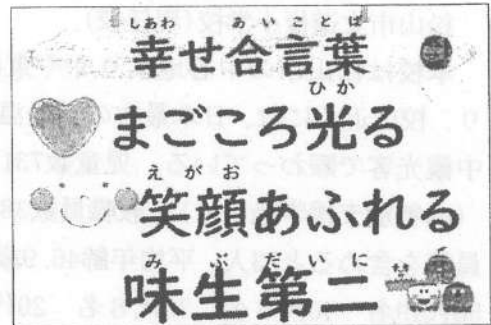 しあわ あいことば
幸せ合言葉
ひか
まごころ光る
えがお
笑顔あふれる
みぶだいに
味生第二